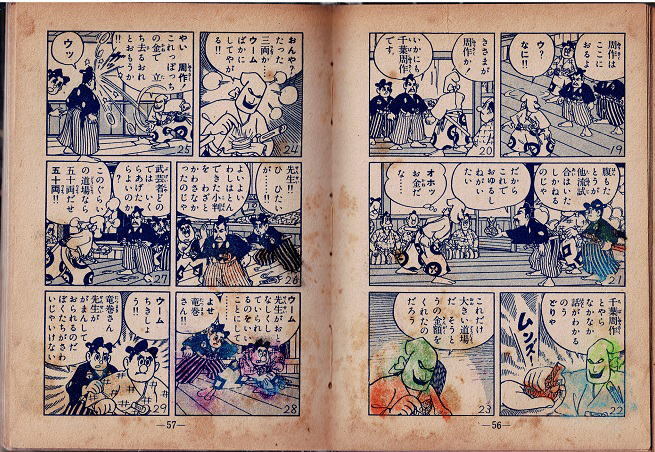 周作は
ここに
おるよ
ウ?
なに!!
19
きさまが
周作か!
いかにも
千葉周作
です。
20
腹もた
とうが
他流試
合はいた
しかねる
のじゃ
だから
これで
おゆる
ねがい
たい
オホッ
お金だ
な……
21
千葉周作
とやら
なかなか
話がわかる
のう
どりゃ
ムンズ
22
これだけ
大きい道場
だ そうと
うの金額を
くれたの
だろう
23
—56—
おんや?
たった
三両か…
ウーム
ばかに
してやが
る!!
24
やい 周作!
これっぽっち
の金で 立
ち去るおれ
とおもうか
ウッ
25
先生!!
ひ ひたい
が…
よいよい
わしはとん
できた小判
を わざと
かわさなか
ったのじゃ
26
武芸者どの
では いく
らあげた
らよいの
?
このぐらい
の道場なら
五十両だせ
五十両!!
27
ウーム
先生がおと
ことにし
てるのをいい
よせ
竜巻
さん!!
28
ウーム
ちきしょ
う!!
竜巻さん
先生が
がまんして
おられるのだ
ぼくたちがさわ
いじゃいけない
29
—57—